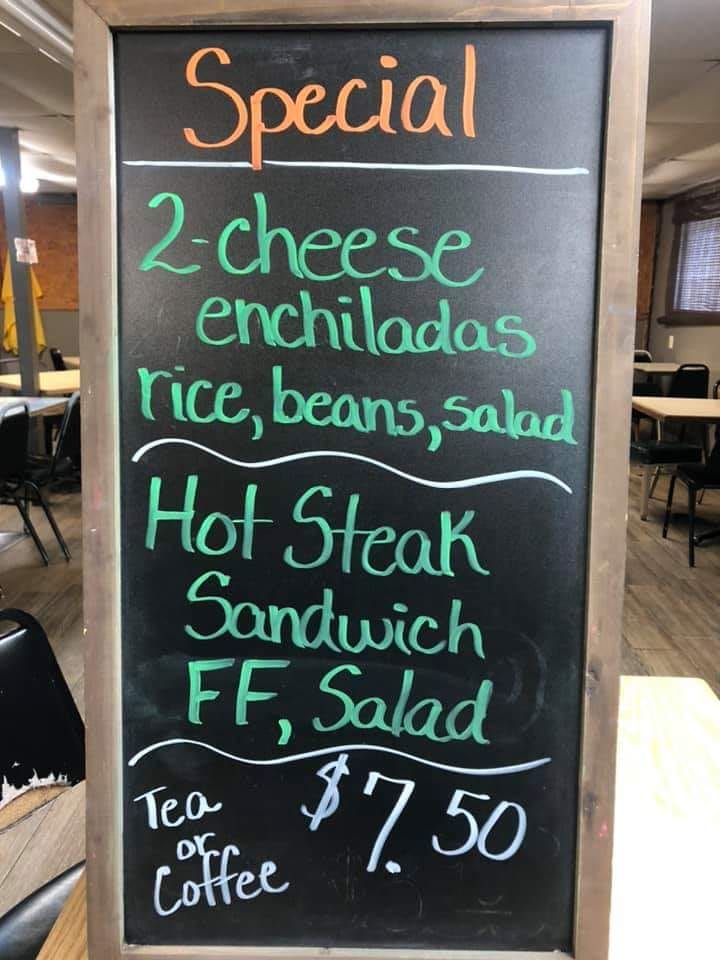 Special
2-cheese
enchiladas
rice, beans, salad
Hot Steak
Sandwich
FF, Salad
Tea
or
Coffee
$7.50